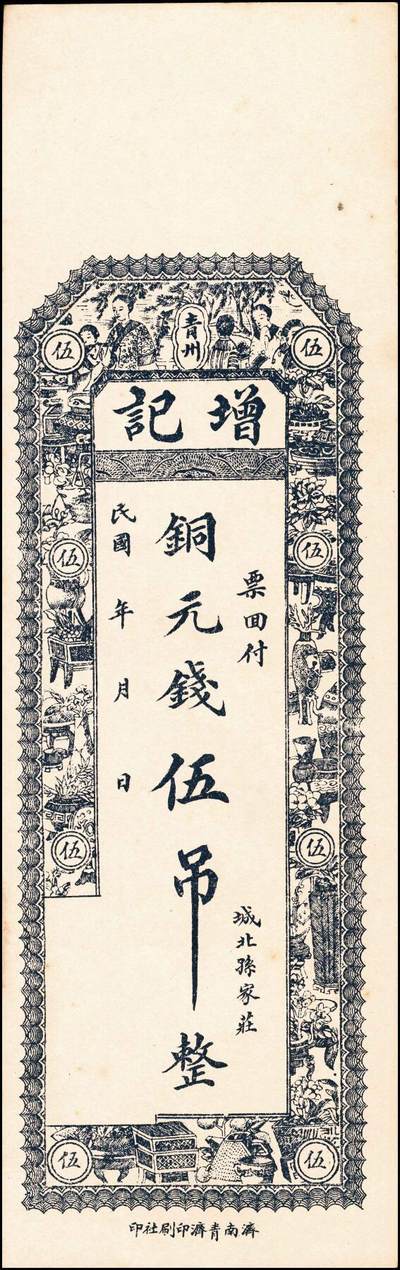 青州
增記
伍 伍
伍 伍
伍 伍
伍 伍
票回付
城北孫家莊
銅元錢伍吊整
民國 年 月 日
濟南青濟印刷社印